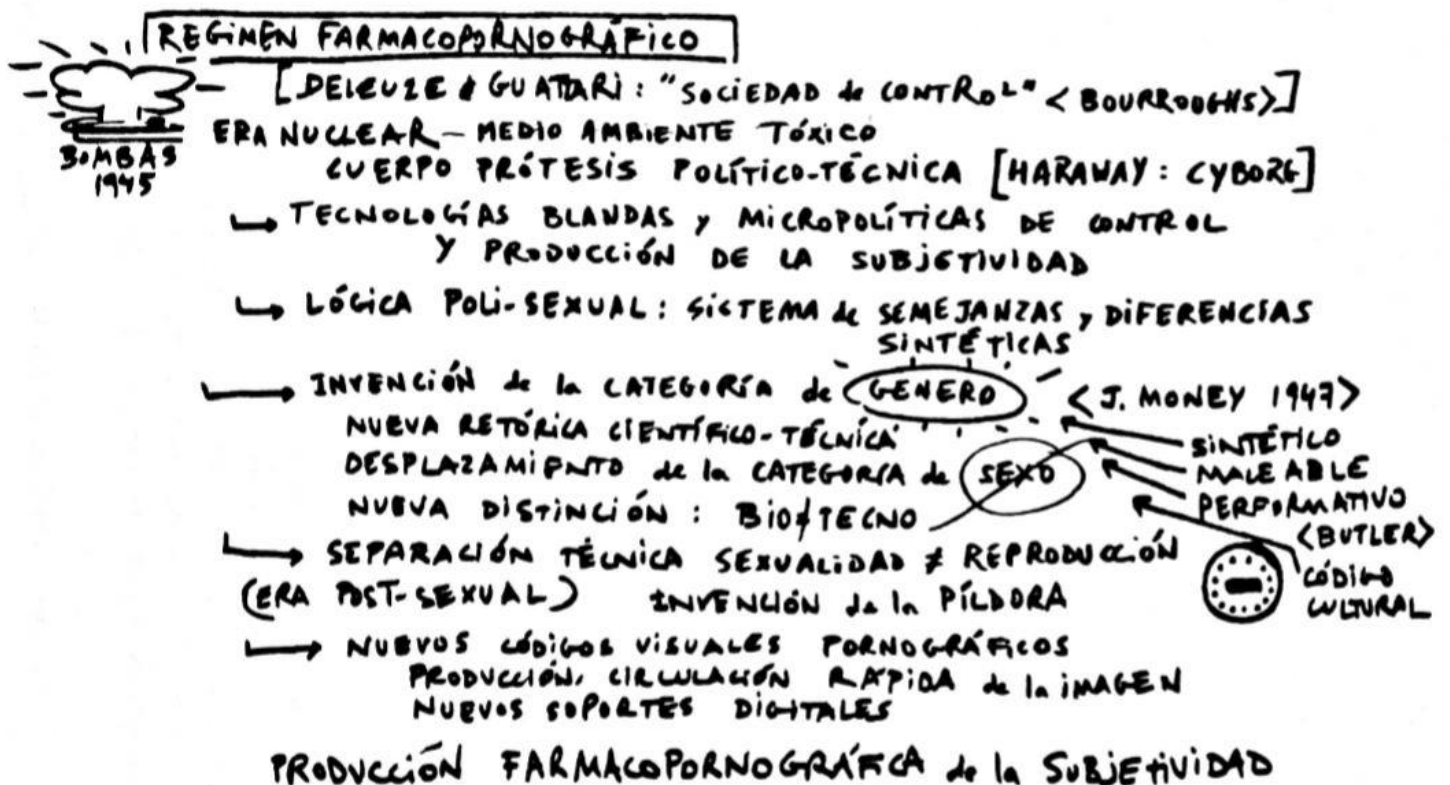 REGIMEN FARMACOPORNOGRÁFICO
[DELEUZE & GUATTARI: "SOCIEDAD de CONTROL" <BOURROUGHS>]
ERA NUCLEAR – MEDIO AMBIENTE TÓXICO
BOMBAS
1945
CUERPO PRÓTESIS POLÍTICO-TÉCNICA [HARAWAY: CYBORG]
↳ TECNOLOGÍAS BLANDAS y MICROPOLÍTICAS DE CONTROL
Y PRODUCCIÓN DE LA SUBJETIVIDAD
↳ LÓGICA POLI-SEXUAL: SISTEMA de SEMEJANZAS y DIFERENCIAS
SINTÉTICAS
↳ INVENCIÓN de la CATEGORÍA de GENERO <J. MONEY 1947>
NUEVA RETÓRICA CIENTÍFICO-TÉCNICA
DESPLAZAMIENTO de la CATEGORÍA de SEXO
NUEVA DISTINCIÓN: BIO≠TECNO
SINTÉTICO
MALEABLE
PERFORMATIVO
<BUTLER>
CÓDIGO
CULTURAL
↳ SEPARACIÓN TÉCNICA SEXUALIDAD ≠ REPRODUCCIÓN
(ERA POST-SEXUAL) INVENCIÓN de la PÍLDORA
↳ NUEVOS CÓDIGOS VISUALES PORNOGRÁFICOS
PRODUCCIÓN, CIRCULACIÓN RÁPIDA de la IMAGEN
NUEVOS SOPORTES DIGITALES
PRODUCCIÓN FARMACOPORNOGRÁFICA de la SUBJETIVIDAD